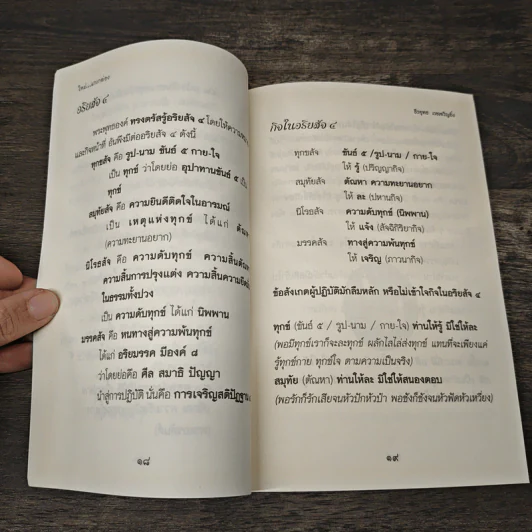 อริยสัจ ๔
พระพุทธองค์ ทรงตรัสรู้อริยสัจ ๔ โดยให้ความ
และกิจหน้าที่ อันพึงมีต่ออริยสัจ ๔ ดังนี้
ทุกขสัจ คือ รูป-นาม ขันธ์ ๕ กาย-ใจ
เป็น ทุกข์ ว่าโดยย่อ อุปาทานขันธ์ ๕ เป็น
ทุกข์
สมุทัยสัจ คือ ความยินดีติดใจในอารมณ์
เป็น เหตุแห่งทุกข์ ได้แก่
(ความทะยานอยาก)
นิโรธสัจ คือ ความดับทุกข์ ความสิ้น
ความสิ้นการปรุงแต่ง ความสิ้นความยึด
ในธรรมทั้งปวง
เป็น ความดับทุกข์ ได้แก่ นิพพาน
มรรคสัจ คือ หนทางสู่ความพ้นทุกข์
ได้แก่ อริยมรรค มีองค์ ๘
ว่าโดยย่อคือ ศีล สมาธิ ปัญญา
นำสู่การปฏิบัติ นั่นคือ การเจริญสติปัฏฐาน
๑๘
กิจในอริยสัจ ๔
ทุกขสัจ ขันธ์ ๕ /รูป-นาม / กาย-ใจ
ให้ รู้ (ปริญญากิจ)
สมุทัยสัจ ตัณหา ความทะยานอยาก
ให้ ละ (ปหานกิจ)
นิโรธสัจ ความดับทุกข์ (นิพพาน)
ให้ แจ้ง (สัจฉิกิริยากิจ)
มรรคสัจ ทางสู่ความพ้นทุกข์
ให้ เจริญ (ภาวนากิจ)
ข้อสังเกตผู้ปฏิบัติมักลืมหลัก หรือไม่เข้าใจกิจในอริยสัจ ๔
ทุกข์ (ขันธ์ ๕ / รูป-นาม / กาย-ใจ) ท่านให้รู้ มิใช่ให้ละ
(พอมีทุกข์เราก็จะละทุกข์ ผลักไสไล่ส่งทุกข์ แทนที่จะเพียงแค่
รู้ทุกข์กาย ทุกข์ใจ ตามความเป็นจริง)
สมุทัย (ตัณหา) ท่านให้ละ มิใช่ให้สนองตอบ
(พอรักก็รักเสียจนหัวปักหัวปำ พอชังก็ชังจนหัวฟัดหัวเหวี่ยง)
๑๙